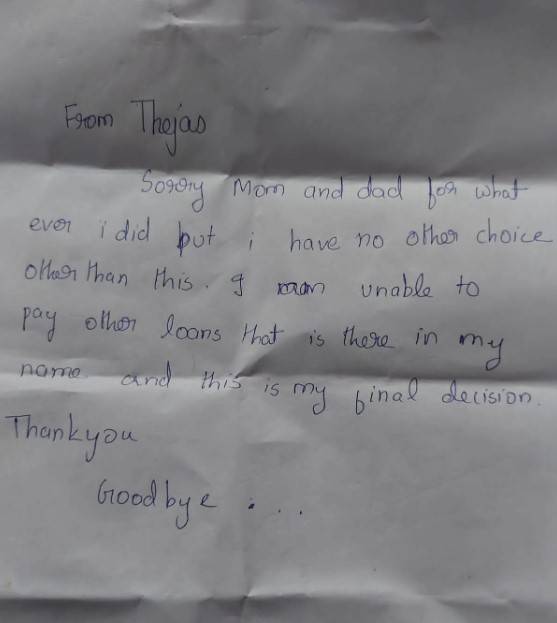 From Thejas
Sorry Mom and dad for what
ever i did but i have no other choice
other than this. I am unable to
pay other loans that is there in my
name and this is my final decision.
Thankyou
Goodbye ...